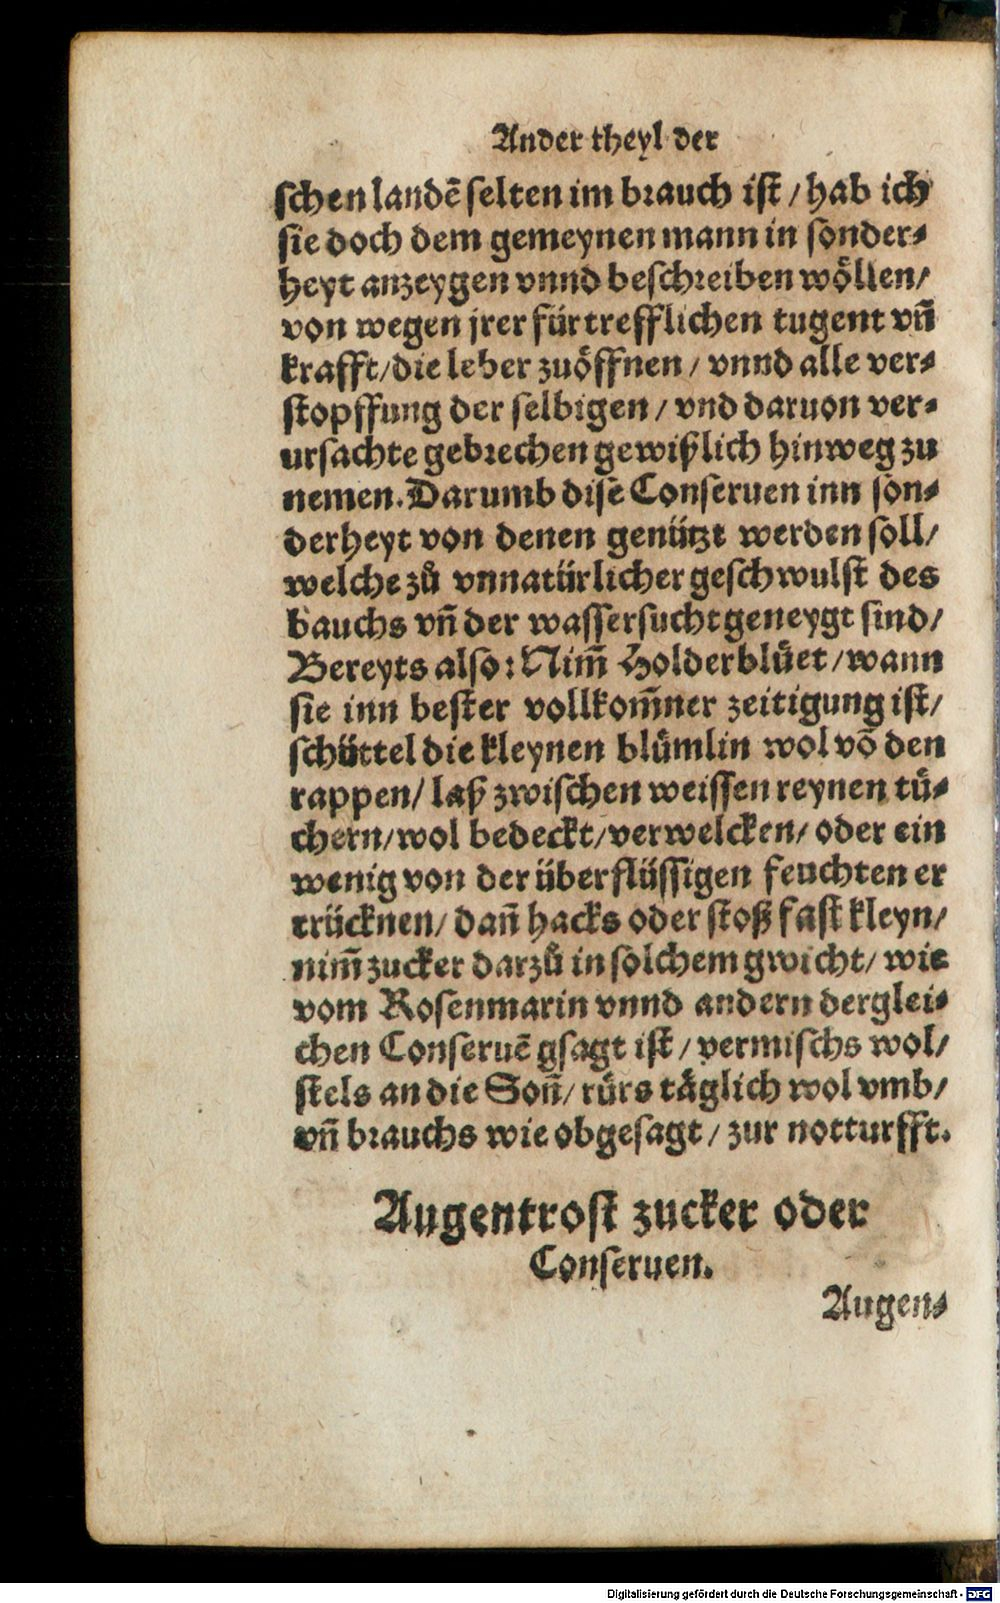 Ander theyl der
schen landē selten im brauch ist / hab ich
sie doch dem gemeynen mann in sonder⸗
heyt anzeygen vnnd beschreiben wöllen /
von wegen jrer fürtrefflichen tugent vñ
krafft / die leber zuöffnen / vnnd alle ver⸗
stopffung der selbigen / vnd daruon ver⸗
ursachte gebrechen gewißlich hinweg zu
nemen. Darumb dise Conseruen inn son⸗
derheyt von denen genützt werden soll /
welche zů vnnatürlicher geschwulst des
bauchs vñ der wassersucht geneygt sind /
Bereyts also: Nim̃ Holderblüet / wann
sie inn bester vollkom̃ner zeitigung ist /
schüttel die kleynen blümlin wol võ den
rappen / laß zwischen weissen reynen tü⸗
chern / wol bedeckt / verwelcken / oder ein
wenig von der überflüssigen feuchten er
trücknen / dañ hacks oder stoß fast kleyn /
nim̃ zucker darzů in solchem gwicht / wie
vom Rosenmarin vnnd andern derglei⸗
chen Conseruē gsagt ist / vermischs wol /
stels an die Soñ / rürs täglich wol vmb /
vñ brauchs wie obgesagt / zur notturfft.
Augentrost zucker oder
Conseruen.
Augen⸗
Digitalisierung gefördert durch die Deutsche Forschungsgemeinschaft - DFG